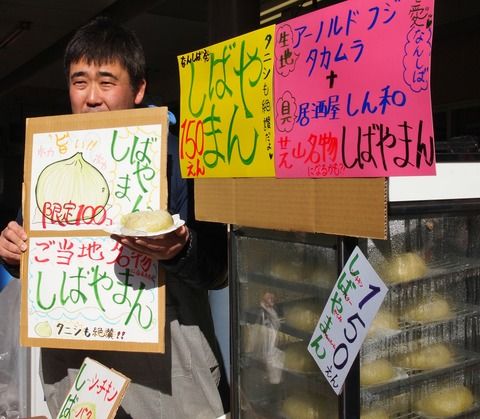 旨い!!
しばやまん
限定100コ
ご当地名物
しばやまん
タニシも絶讃!!
しばやまん
150えん
タニシも絶讃だよ
生地
アーノルドフジ
タカムラ
+
具
居酒屋しん和
芝山名物
になるかも?!
しばやまん
愛なんしば
しばやまん
150えん
シーチキン
しば